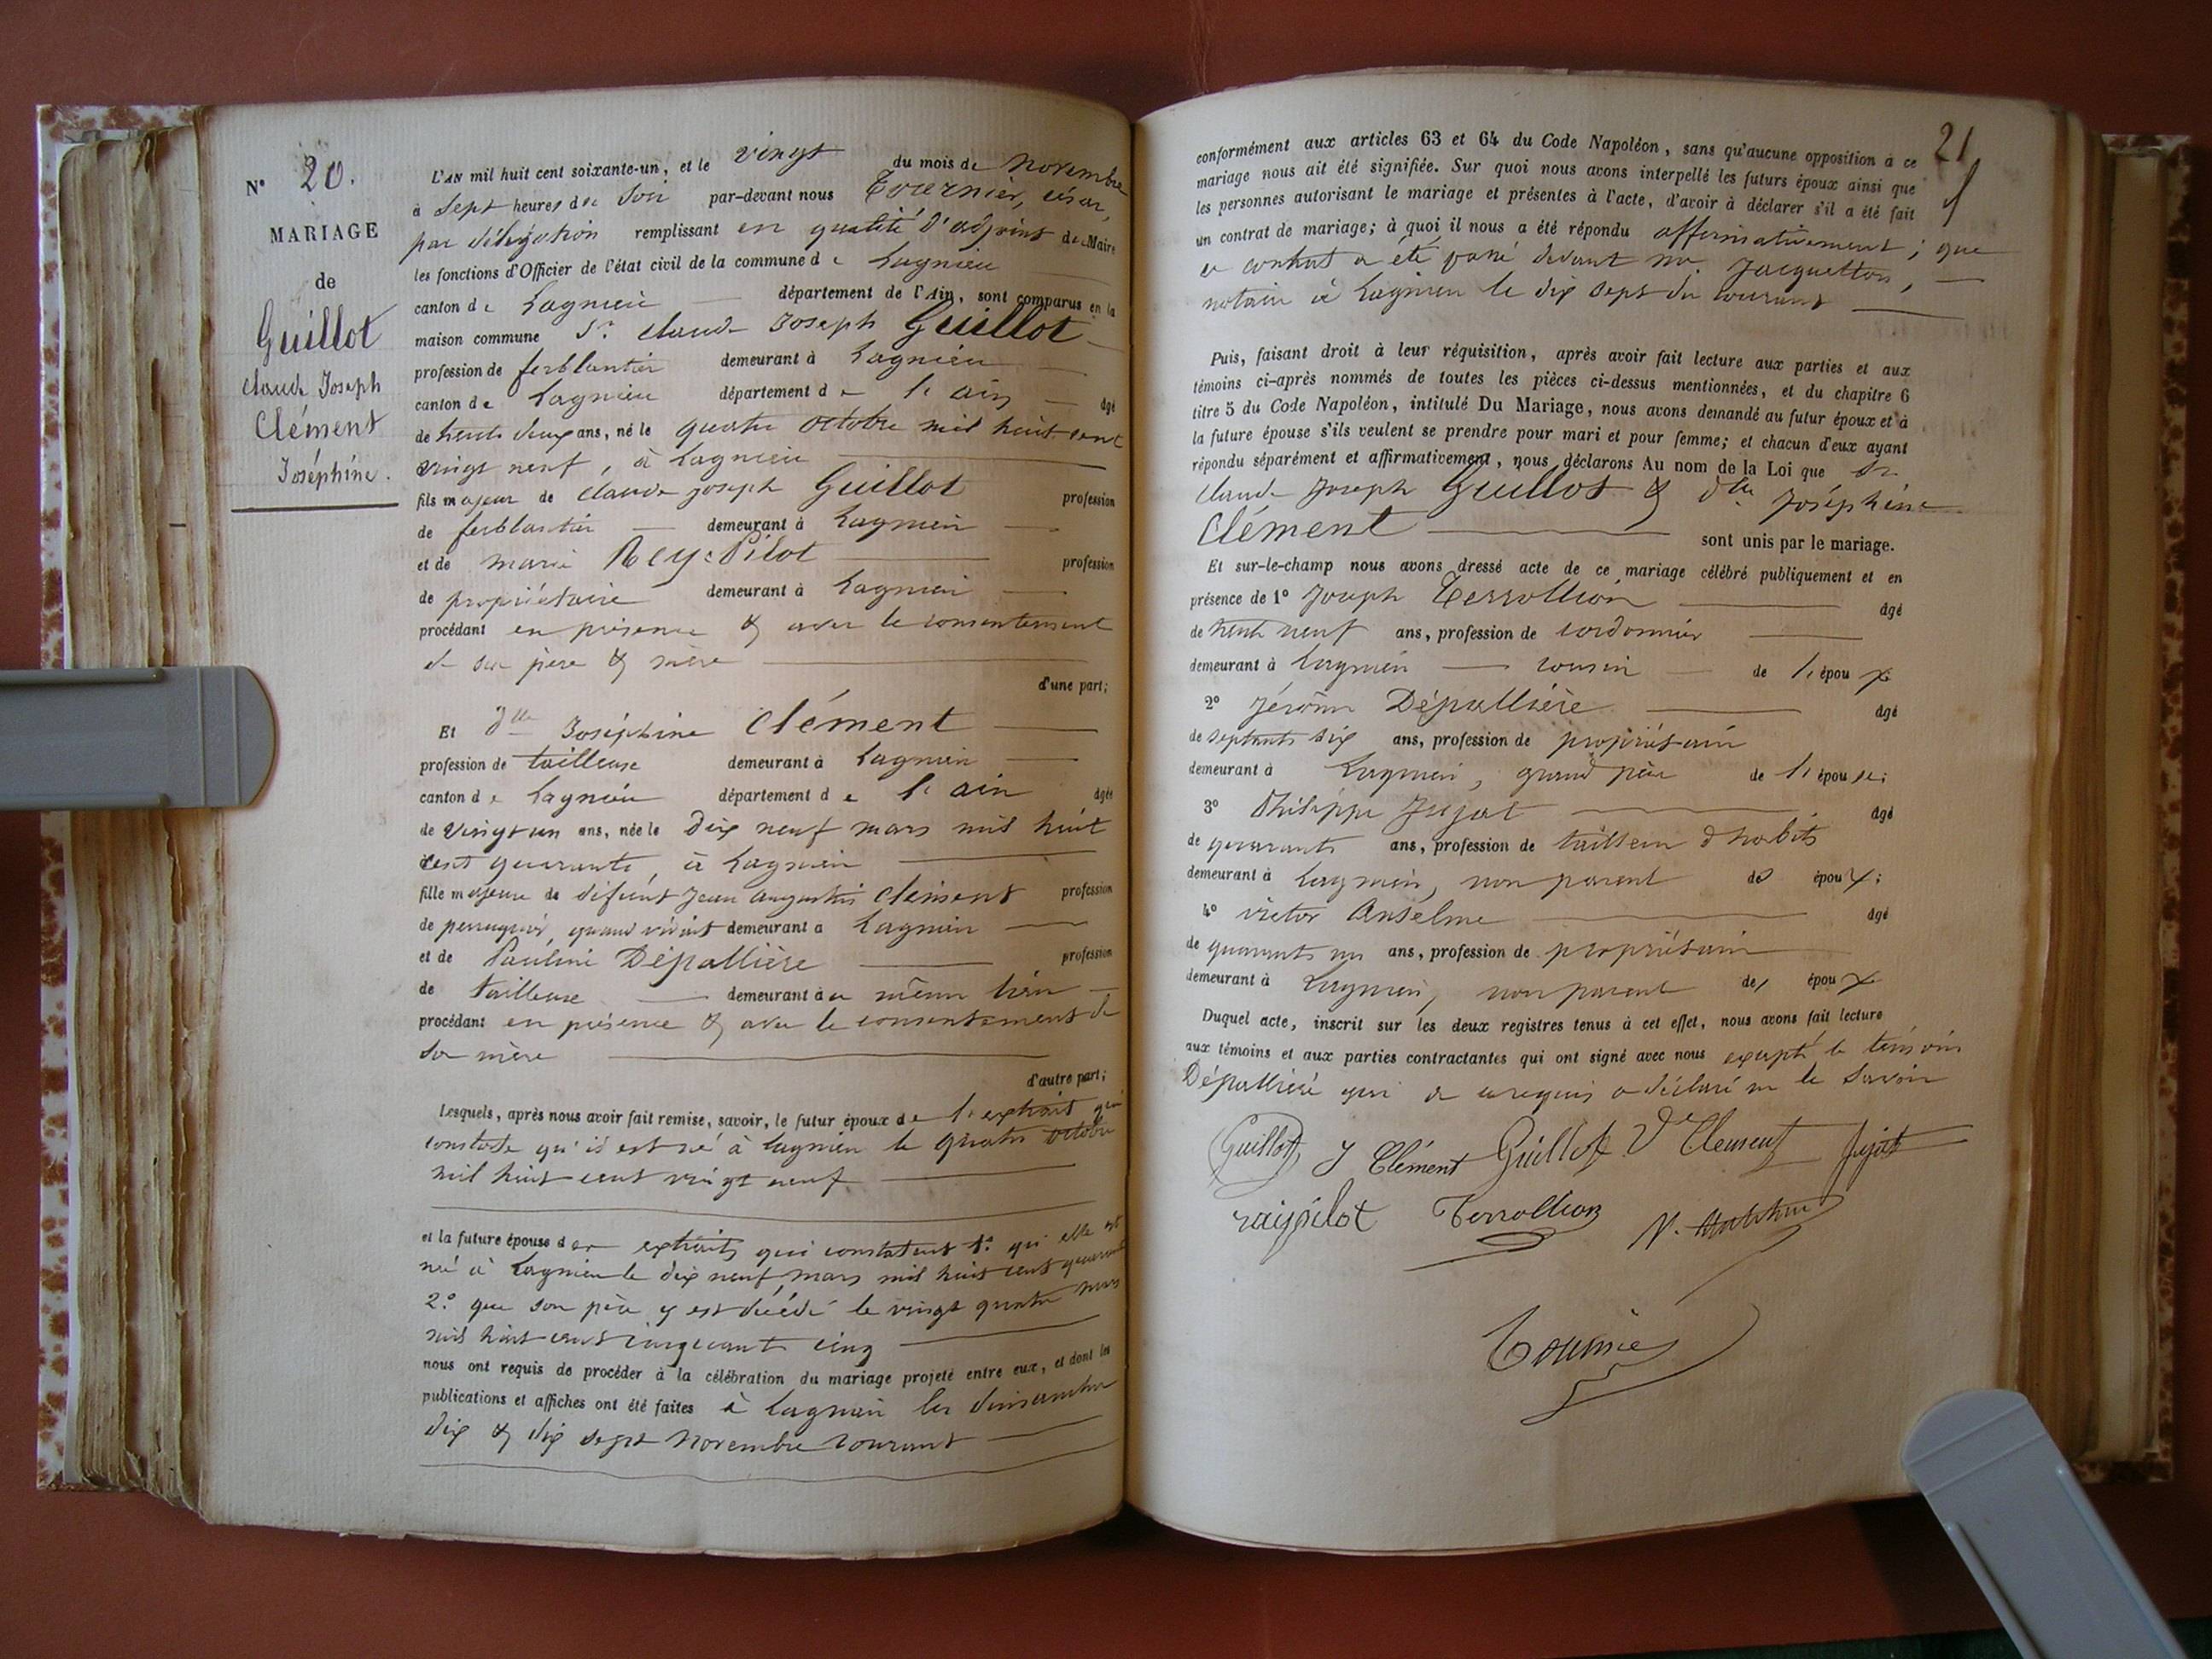 N° 20.
MARIAGE
de
Guillot
Claude Joseph
Clément
Joséphine.
L'AN mil huit cent soixante-un, et le vingt du mois de novembre
à sept heures de soir par-devant nous Tournier, césar,
par délégation remplissant en qualité d'adjoint de Maire
les fonctions d'Officier de l'état civil de la commune de Lagnieu
canton de Lagnieu département de l'Ain, sont comparus en la
maison commune Sr. Claude Joseph Guillot
profession de ferblantier demeurant à Lagnieu
canton de Lagnieu département de l'ain âgé
de trente deux ans, né le quatre octobre mil huit cent
vingt neuf, à Lagnieu
fils majeur de Claude joseph Guillot profession
de ferblantier demeurant à Lagnieu
et de marie Rey-Pilot profession
de propriétaire demeurant à Lagnieu
procédant en présence & avec le consentement
de ses père & mère
d'une part;
Et dlle Joséphine Clément
profession de tailleuse demeurant à Lagnieu
canton de Lagnieu département de l'ain âgée
de vingt un ans, née le dix neuf mars mil huit
cent quarante, à Lagnieu
fille majeure de défunt Jean augustin Clément profession
de perruquier, quand vivait demeurant à Lagnieu
et de Pauline Dépallière profession
de tailleuse demeurant au même lieu
procédant en présence & avec le consentement de
sa mère
d'autre part;
Lesquels, après nous avoir fait remise, savoir, le futur époux de l'extrait qui
constate qu'il est né à Lagnieu le quatre octobre
mil huit cent vingt neuf
et la future épouse des extraits qui constatent 1° qu'elle est
née à Lagnieu le dix neuf mars mil huit cent quarante
2° que son père y est décédé le vingt quatre mars
mil huit cent cinquante cinq
nous ont requis de procéder à la célébration du mariage projeté entre eux, et dont les
publications et affiches ont été faites à Lagnieu les dimanches
dix & dix sept novembre courant
21
conformément aux articles 63 et 64 du Code Napoléon, sans qu'aucune opposition à ce
mariage nous ait été signifiée. Sur quoi nous avons interpellé les futurs époux ainsi que
les personnes autorisant le mariage et présentes à l'acte, d'avoir à déclarer s'il a été fait
un contrat de mariage; à quoi il nous a été répondu affirmativement; que
ce contrat a été passé devant me. Jacquetton,
notaire à Lagnieu le dix sept du courant
Puis, faisant droit à leur réquisition, après avoir fait lecture aux parties et aux
témoins ci-après nommés de toutes les pièces ci-dessus mentionnées, et du chapitre 6
titre 5 du Code Napoléon, intitulé Du Mariage, nous avons demandé au futur époux et à
la future épouse s'ils veulent se prendre pour mari et pour femme; et chacun d'eux ayant
répondu séparément et affirmativement, nous déclarons Au nom de la Loi que Sr.
Claude Joseph Guillot & dlle Joséphine
Clément sont unis par le mariage.
Et sur-le-champ nous avons dressé acte de ce mariage célébré publiquement et en
présence de 1° Joseph Terrollion âgé
de trente neuf ans, profession de cordonnier
demeurant à Lagnieu cousin de l'époux
2° Jérôme Dépallière âgé
de septante six ans, profession de propriétaire
demeurant à Lagnieu, grand père de l'épouse;
3° Philippe Jujat âgé
de quarante ans, profession de tailleur d'habits
demeurant à Lagnieu, non parent des époux;
4° victor Anselme âgé
de quarante un ans, profession de propriétaire
demeurant à Lagnieu, non parent des époux
Duquel acte, inscrit sur les deux registres tenus à cet effet, nous avons fait lecture
aux témoins et aux parties contractantes qui ont signé avec nous excepté le témoin
Dépallière qui de ce requis a déclaré ne le savoir
Guillot J Clément Guillot Ve Clement Jujat
raypilot Terrollion
Tournier